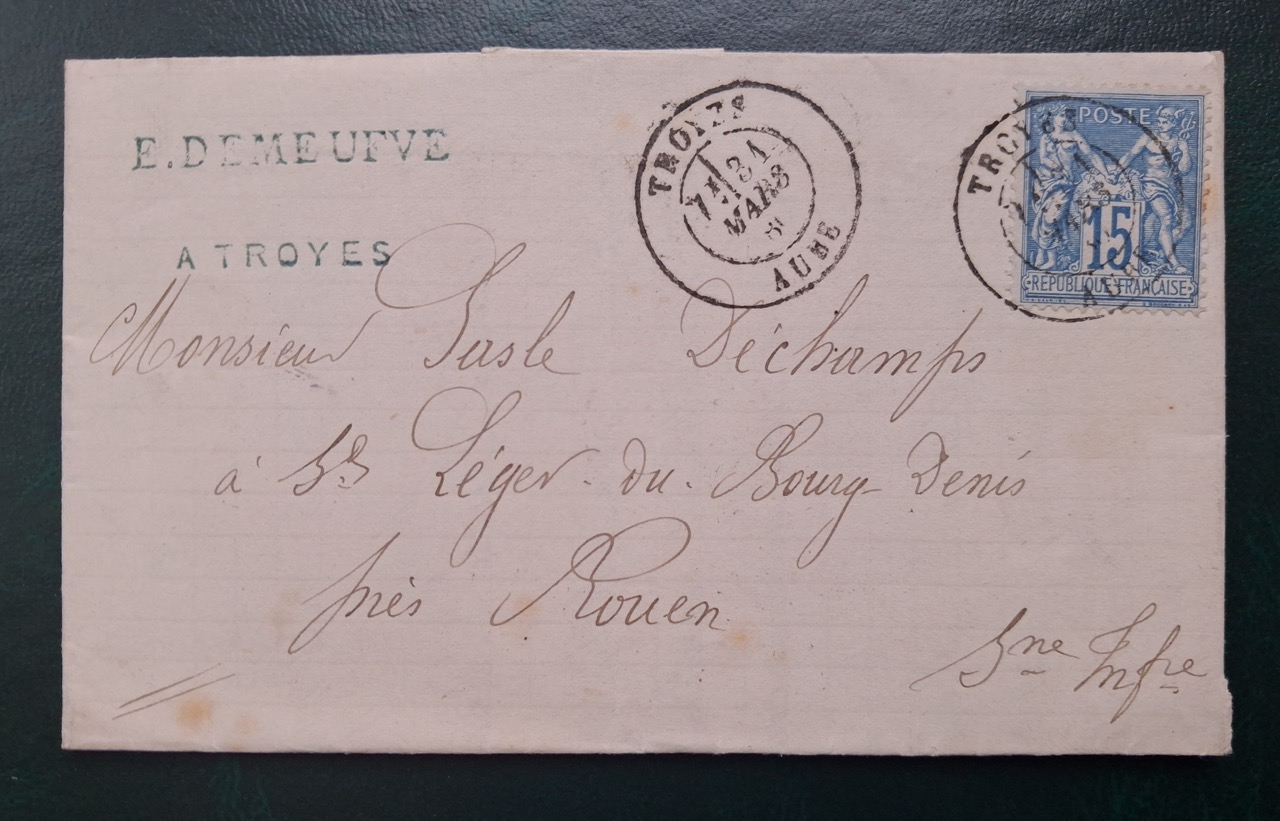 E. DEMEUFVE
A TROYES
TROYES
31
MARS
AUBE
TROYES
MARS
AUBE
POSTE
15
RÉPUBLIQUE FRANÇAISE
Monsieur Déchamps
à St Léger-du-Bourg-Denis
près Rouen
Sne Infre